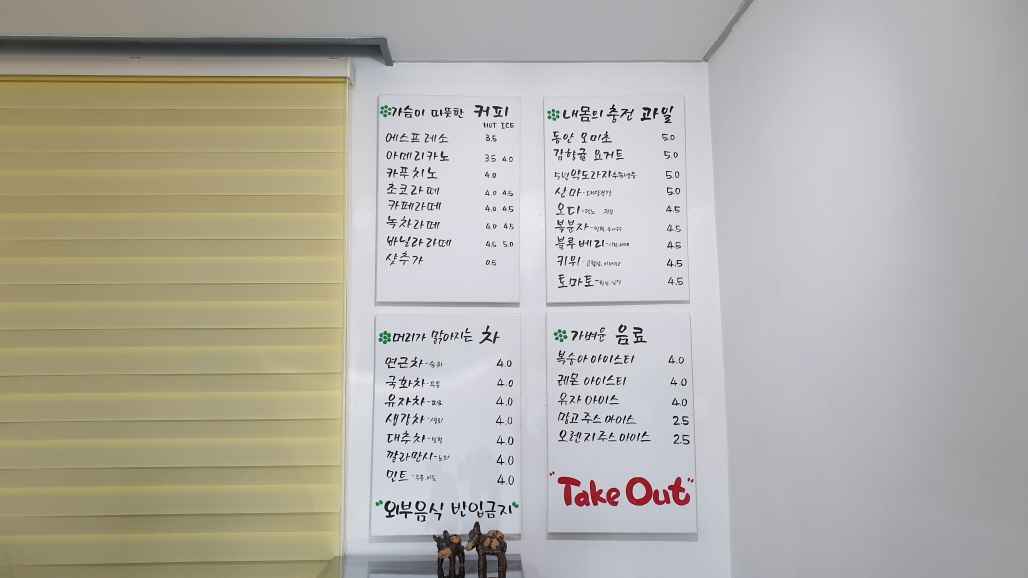 가슴이 따뜻한 커피
HOT ICE
에스프레소 3.5
아메리카노 3.5 4.0
카푸치노 4.0
초코라떼 4.0 4.5
카페라떼 4.0 4.5
녹차라떼 4.0 4.5
바닐라라떼 4.5 5.0
샷추가 0.5
내몸의 충전 과일
동안 오미초 5.0
감향귤 요거트 5.0
5년약도라지 5.0
산마 5.0
오디 4.5
복분자 4.5
블루베리 4.5
키위 4.5
토마토 4.5
머리가 맑아지는 차
연근차 4.0
국화차 4.0
유자차 4.0
생강차 4.0
대추차 4.0
깔라만시 4.0
민트 4.0
"외부음식 반입금지"
가벼운 음료
복숭아 아이스티 4.0
레몬 아이스티 4.0
유자 아이스 4.0
망고주스 아이스 2.5
오렌지주스 아이스 2.5
"Take Out"